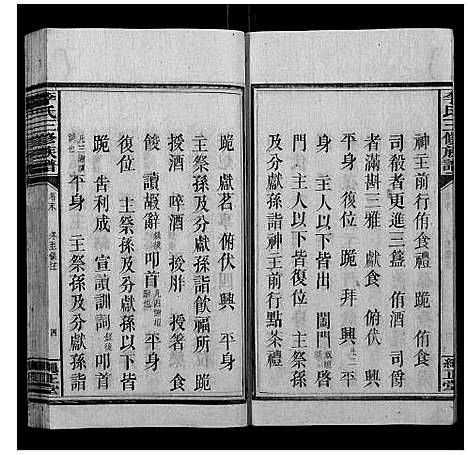 李氏三修族譜
神主前行侑食禮 跪 侑食
司殺者更進三盞 侑酒 司爵
者滿斟三雅 獻食 俯伏 興
平身 復位 跪 拜 興 平
身 主人以下皆出 闔門 啓
門 主人以下皆復位 主祭孫
及分獻孫詣神主前行點茶禮
跪 獻茗 俯伏 興 平身
主祭孫及分獻孫詣飮福所 跪
授酒 啐酒 授胙 授箸 食
餕 讀嘏辭 叩首 平身
復位 主祭孫及分獻孫以下皆
跪 告利成 宣讀訓詞 叩首
平身 主祭孫及分獻孫詣
李氏三修族譜
卷末 冬至儀注
四